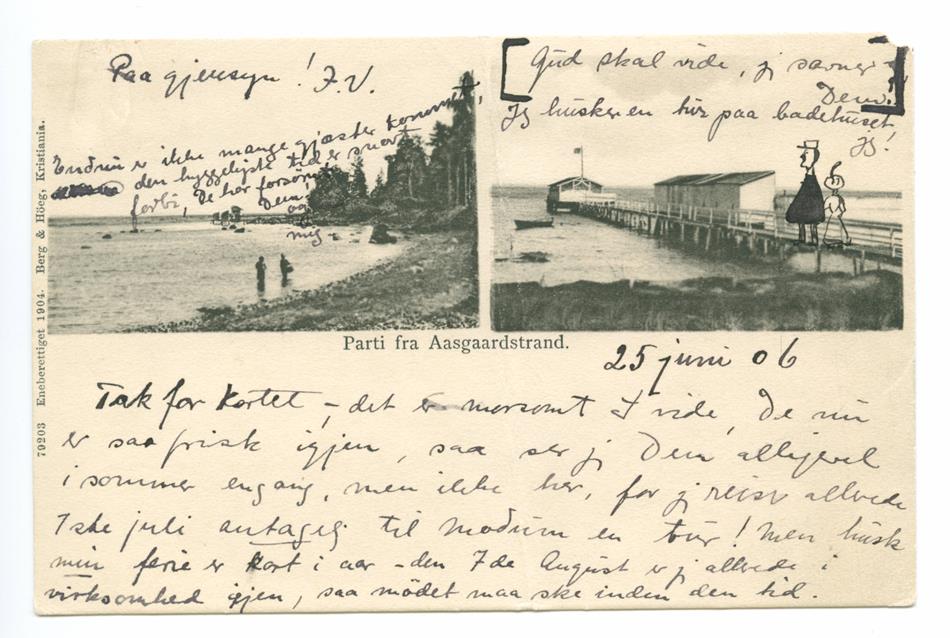 Paa gjensyn! J.V.
Endnu er ikke mange gjæster kommet,
den hyggeligste tid er snart
forbi, De har forsømt
Dem
og
mig
[Gud skal vide, jeg savner
Dem.]
Jeg husker en tur paa badehuset,
Jeg!
79203 Eneberettiget 1904. Berg & Höeg, Kristiania.
Parti fra Aasgaardstrand.
25 juni 06
Tak for kortet – det er morsomt å vide, De nu
er saa frisk igjen, saa ser jeg Dem alligevel
i sommer engang, men ikke her, for jeg reiser allerede
1ste juli antagelig til Modum en tur! Men husk
min ferie er kort i aar – den 7de August er jeg allerede i
virksomhed igjen, saa mödet maa ske inden den tid.